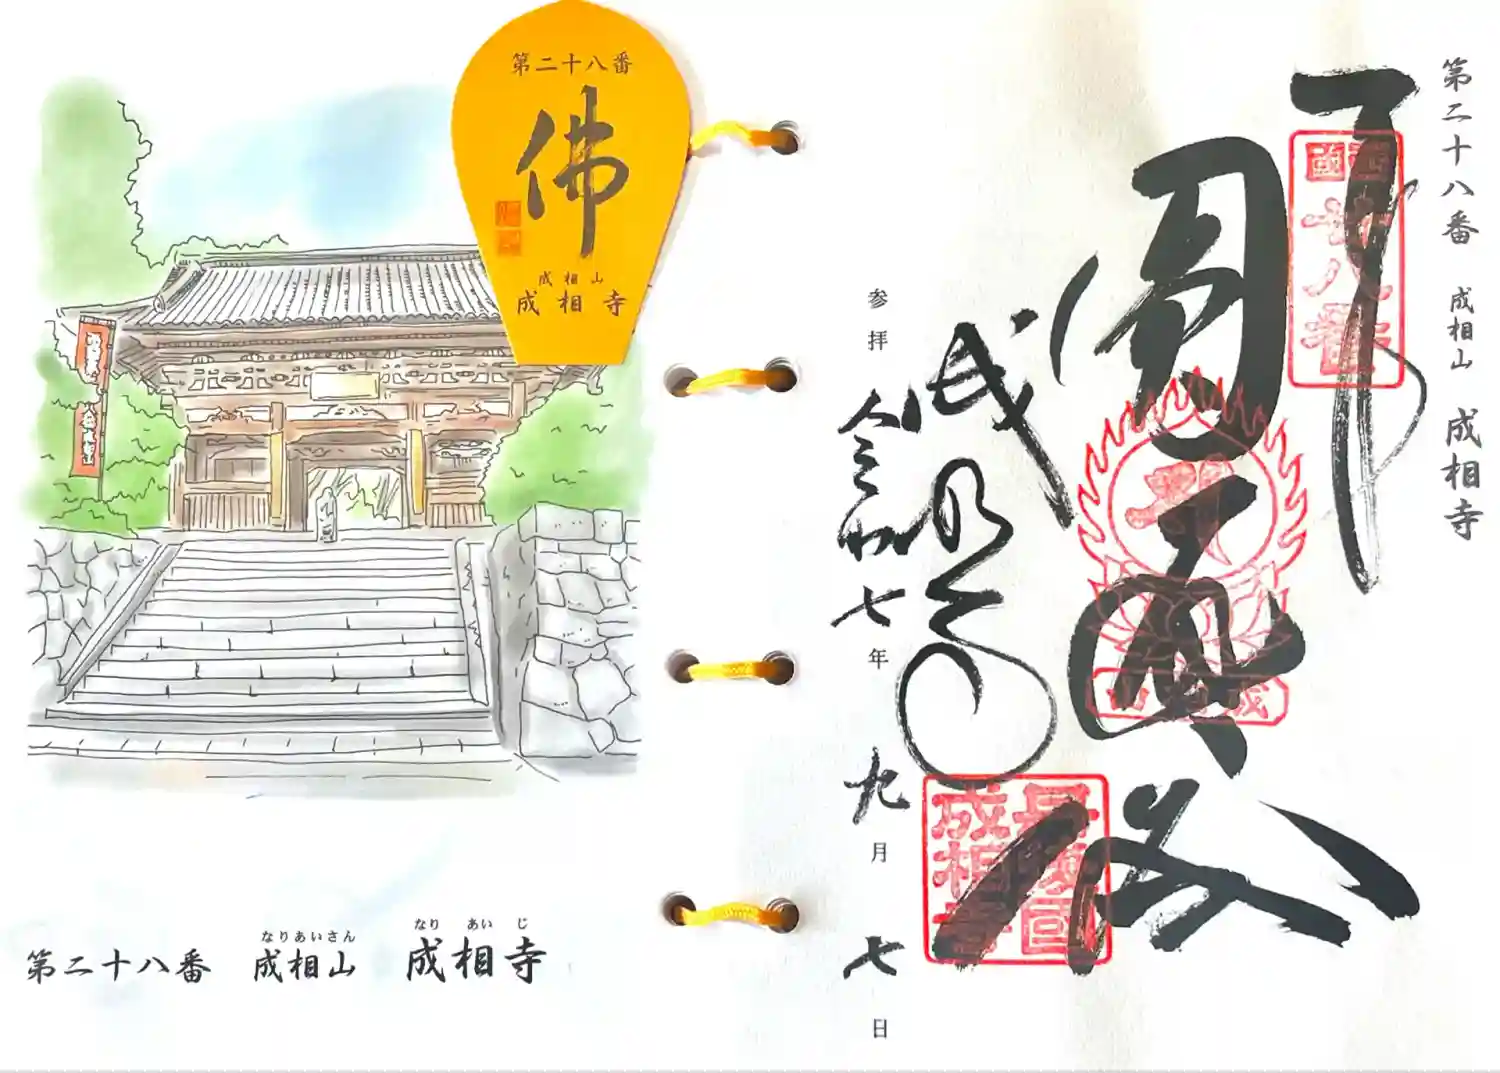 第二十八番
佛
成相山
成相寺
なりあいさん
なりあいじ
第二十八番 成相山 成相寺
第二十八番 成相山 成相寺
西國
廿八番
圓通殿
成相寺
丹後國
成相寺
参拝 令和七年九月七日